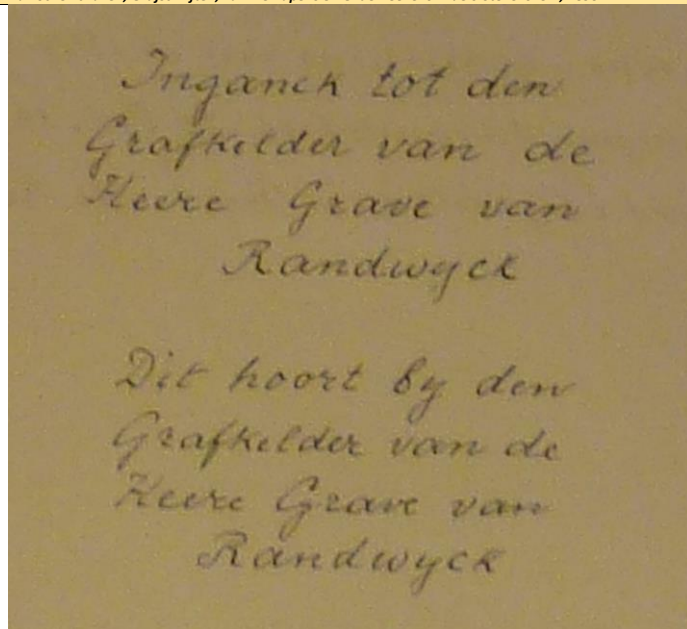 Inganck tot den
Grafkelder van de
Heere Grave van
Randwyck
Dit hoort by den
Grafkelder van de
Heere Grave van
Randwyck